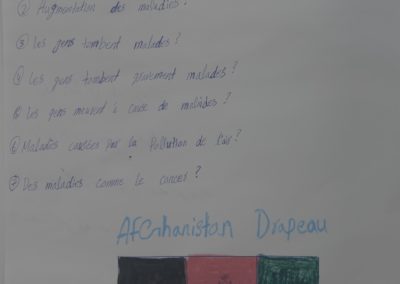 ② Augmentation des maladies ?
③ Les gens tombent malades ?
④ Les gens tombent gravement malades ?
⑤ Les gens meurent à cause de maladies ?
⑥ Maladies causées par la Pollution de l'air ?
⑦ Des maladies comme le cancer ?
Afghanistan Drapeau